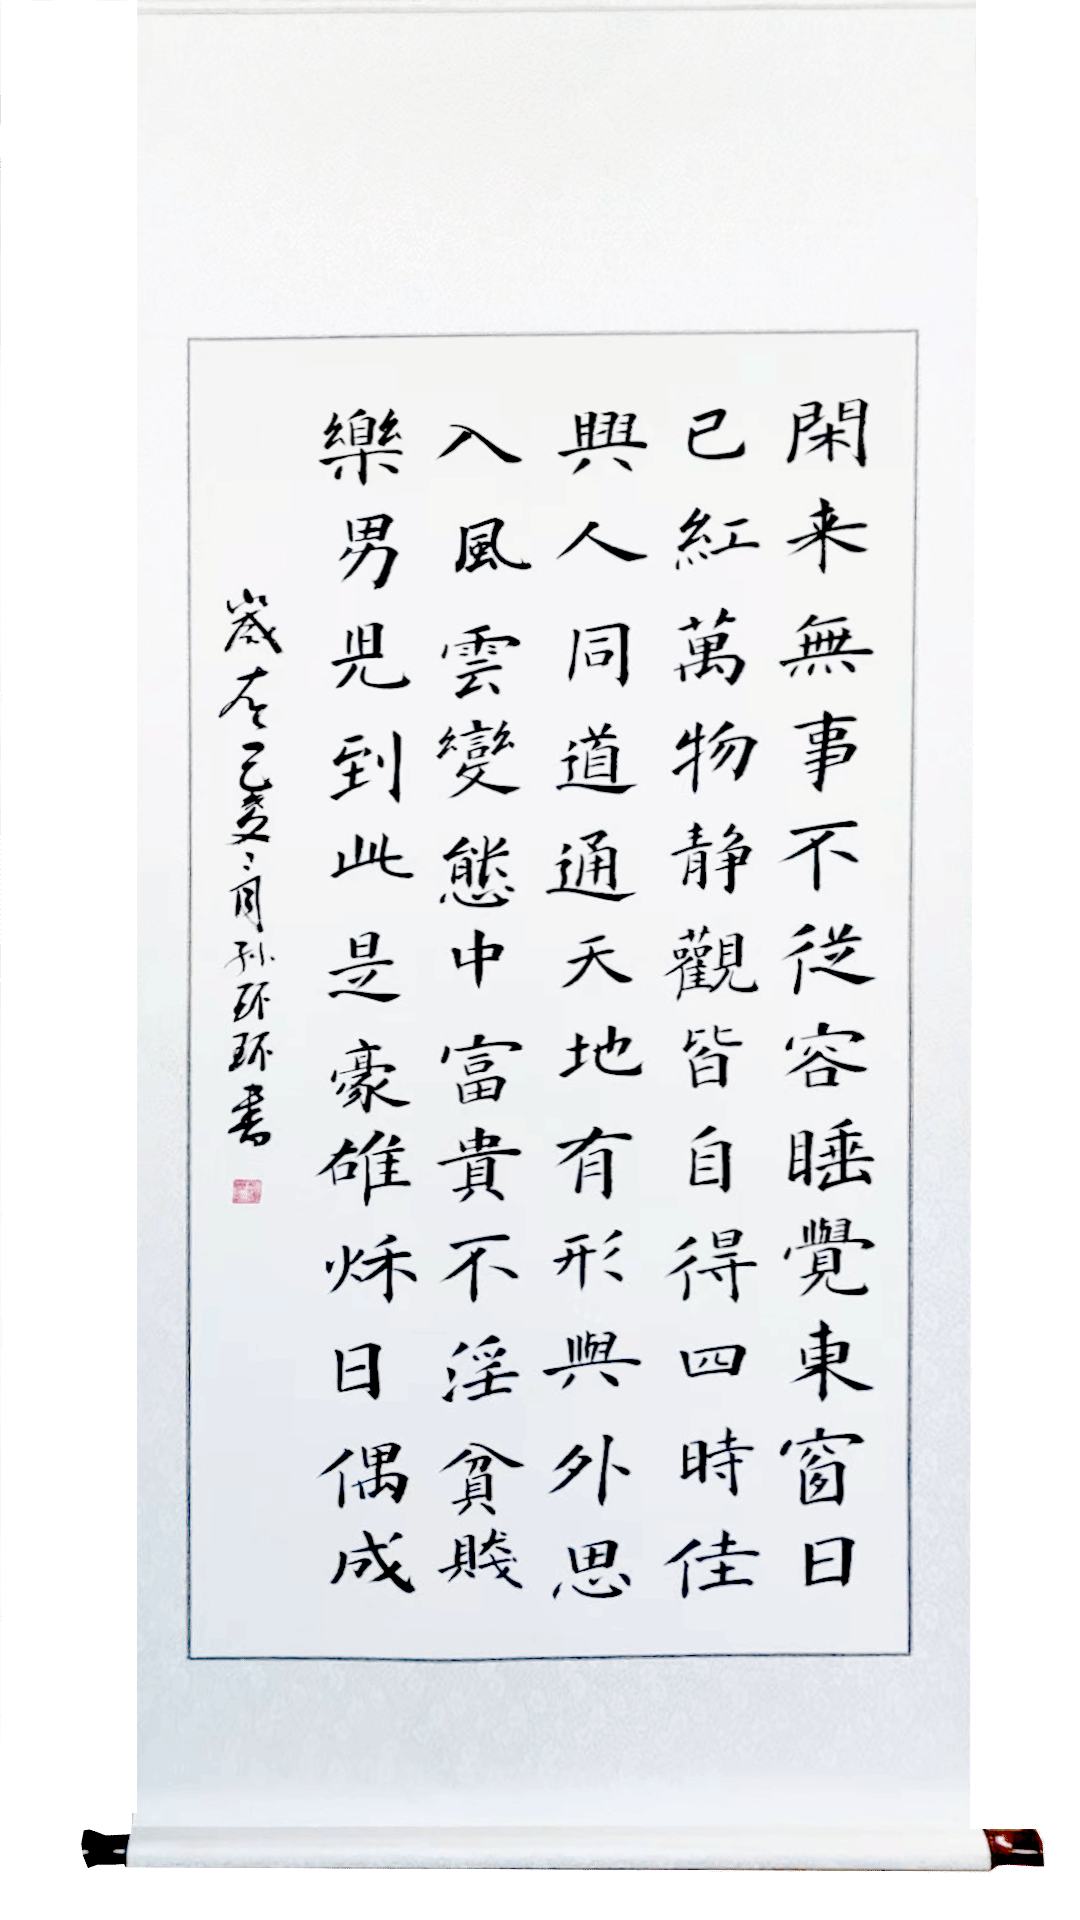 閑来無事不從容睡覺東窗日
已紅萬物静觀皆自得四時佳
興人同道通天地有形與外思
入風雲變態中富貴不淫貧賤
樂男児到此是豪雄秌日偶成
歲在己亥二月孙环环書